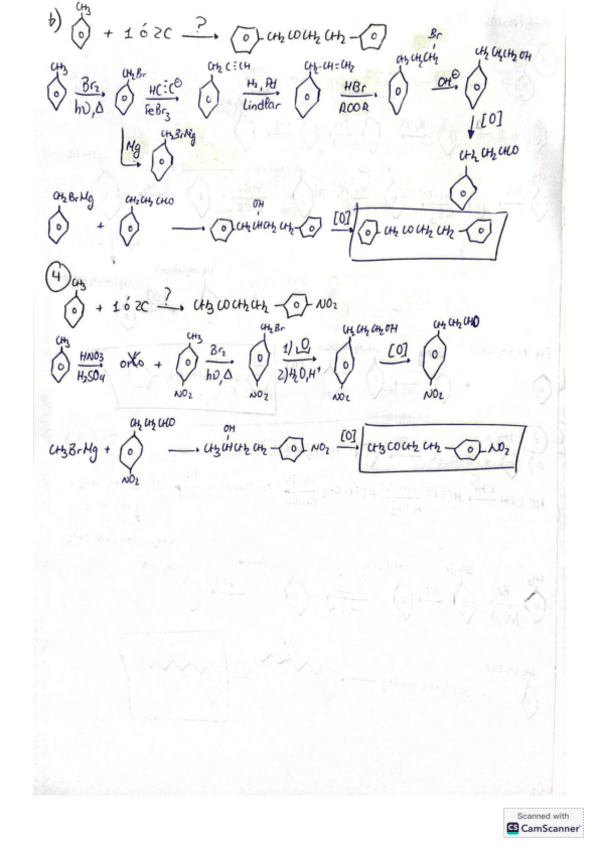 b) CH3 + 1 ó 2C ? CH2 CO CH2 CH2
CH3 Br2 hν, Δ CH2Br HC≡C⊖ FeBr3 CH2 C≡CH H2, Pd Lindlar CH2-CH=CH2 HBr ROOR CH2CH2CH2 Br OH⊖ CH2CH2CH2OH
Mg CH2BrMg [O]
CH2 CH2CHO
CH2BrMg + CH2CH2 CHO OH CH2CHCH2 CH2 [O] CH2 CO CH2 CH2
4
CH3 + 1 ó 2C ? CH3 CO CH2CH2 NO2
CH3 HNO3 H2SO4 orto + CH3 NO2 Br2 hν, Δ CH2Br NO2 1) O 2) H2O, H+ CH2CH2CH2OH NO2 [O] CH2CH2CHO NO2
CH3BrMg + CH2CH2CHO NO2 OH CH3CHCH2 CH2 NO2 [O] CH3COCH2 CH2 NO2
Scanned with
CS CamScanner